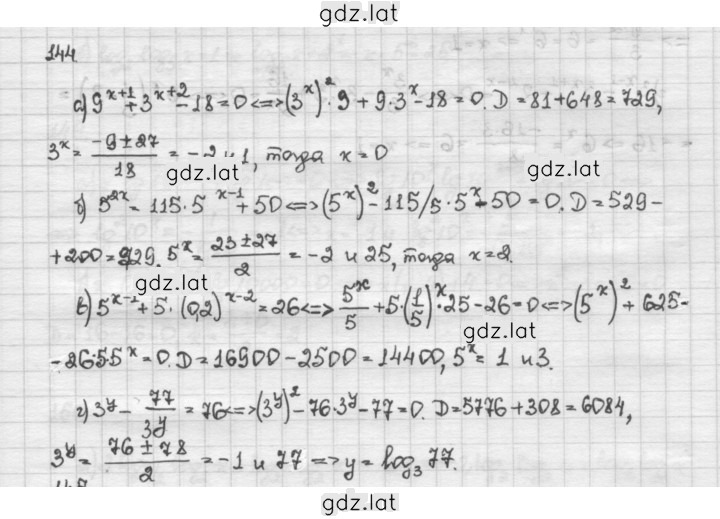 gdz.lat
144
а) 9^{x+1} + 3^{x+2} - 18 = 0 <=> (3^x)^2 · 9 + 9 · 3^x - 18 = 0. D = 81 + 648 = 729,
3^x = \frac{-9 ± 27}{18} = -2 и 1, тогда x = 0
gdz.lat gdz.lat
б) 5^{2x} = 115 · 5^{x-1} + 50 <=> (5^x)^2 - 115/5 · 5^x - 50 = 0. D = 529 -
+ 200 = 929. 5^x = \frac{23 ± 27}{2} = -2 и 25, тогда x = 2.
gdz.lat
в) 5^{x-1} + 5 · (0,2)^{x-2} = 26 <=> \frac{5^x}{5} + 5 · (\frac{1}{5})^x · 25 - 26 = 0 <=> (5^x)^2 + 625 -
gdz.lat
- 26 · 5 · 5^x = 0. D = 16900 - 2500 = 14400, 5^x = 1 и 3.
г) 3^y - \frac{77}{3^y} = 76 <=> (3^y)^2 - 76 · 3^y - 77 = 0. D = 5776 + 308 = 6084,
3^y = \frac{76 ± 78}{2} = -1 и 77 => y = log_3 77.
gdz.lat